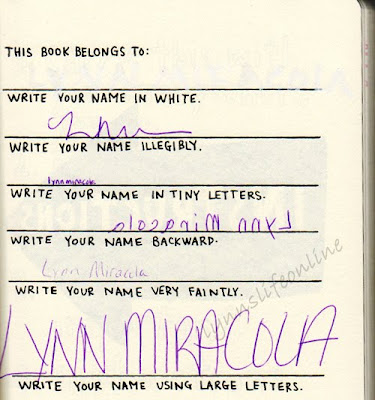 THIS BOOK BELONGS TO:
WRITE YOUR NAME IN WHITE.
WRITE YOUR NAME ILLEGIBLY.
lynn miracola
WRITE YOUR NAME IN TINY LETTERS.
Lynn Miracola
WRITE YOUR NAME BACKWARD.
Lynn Miracola
WRITE YOUR NAME VERY FAINTLY.
LYNN MIRACOLA
WRITE YOUR NAME USING LARGE LETTERS.
lynnslifeonline